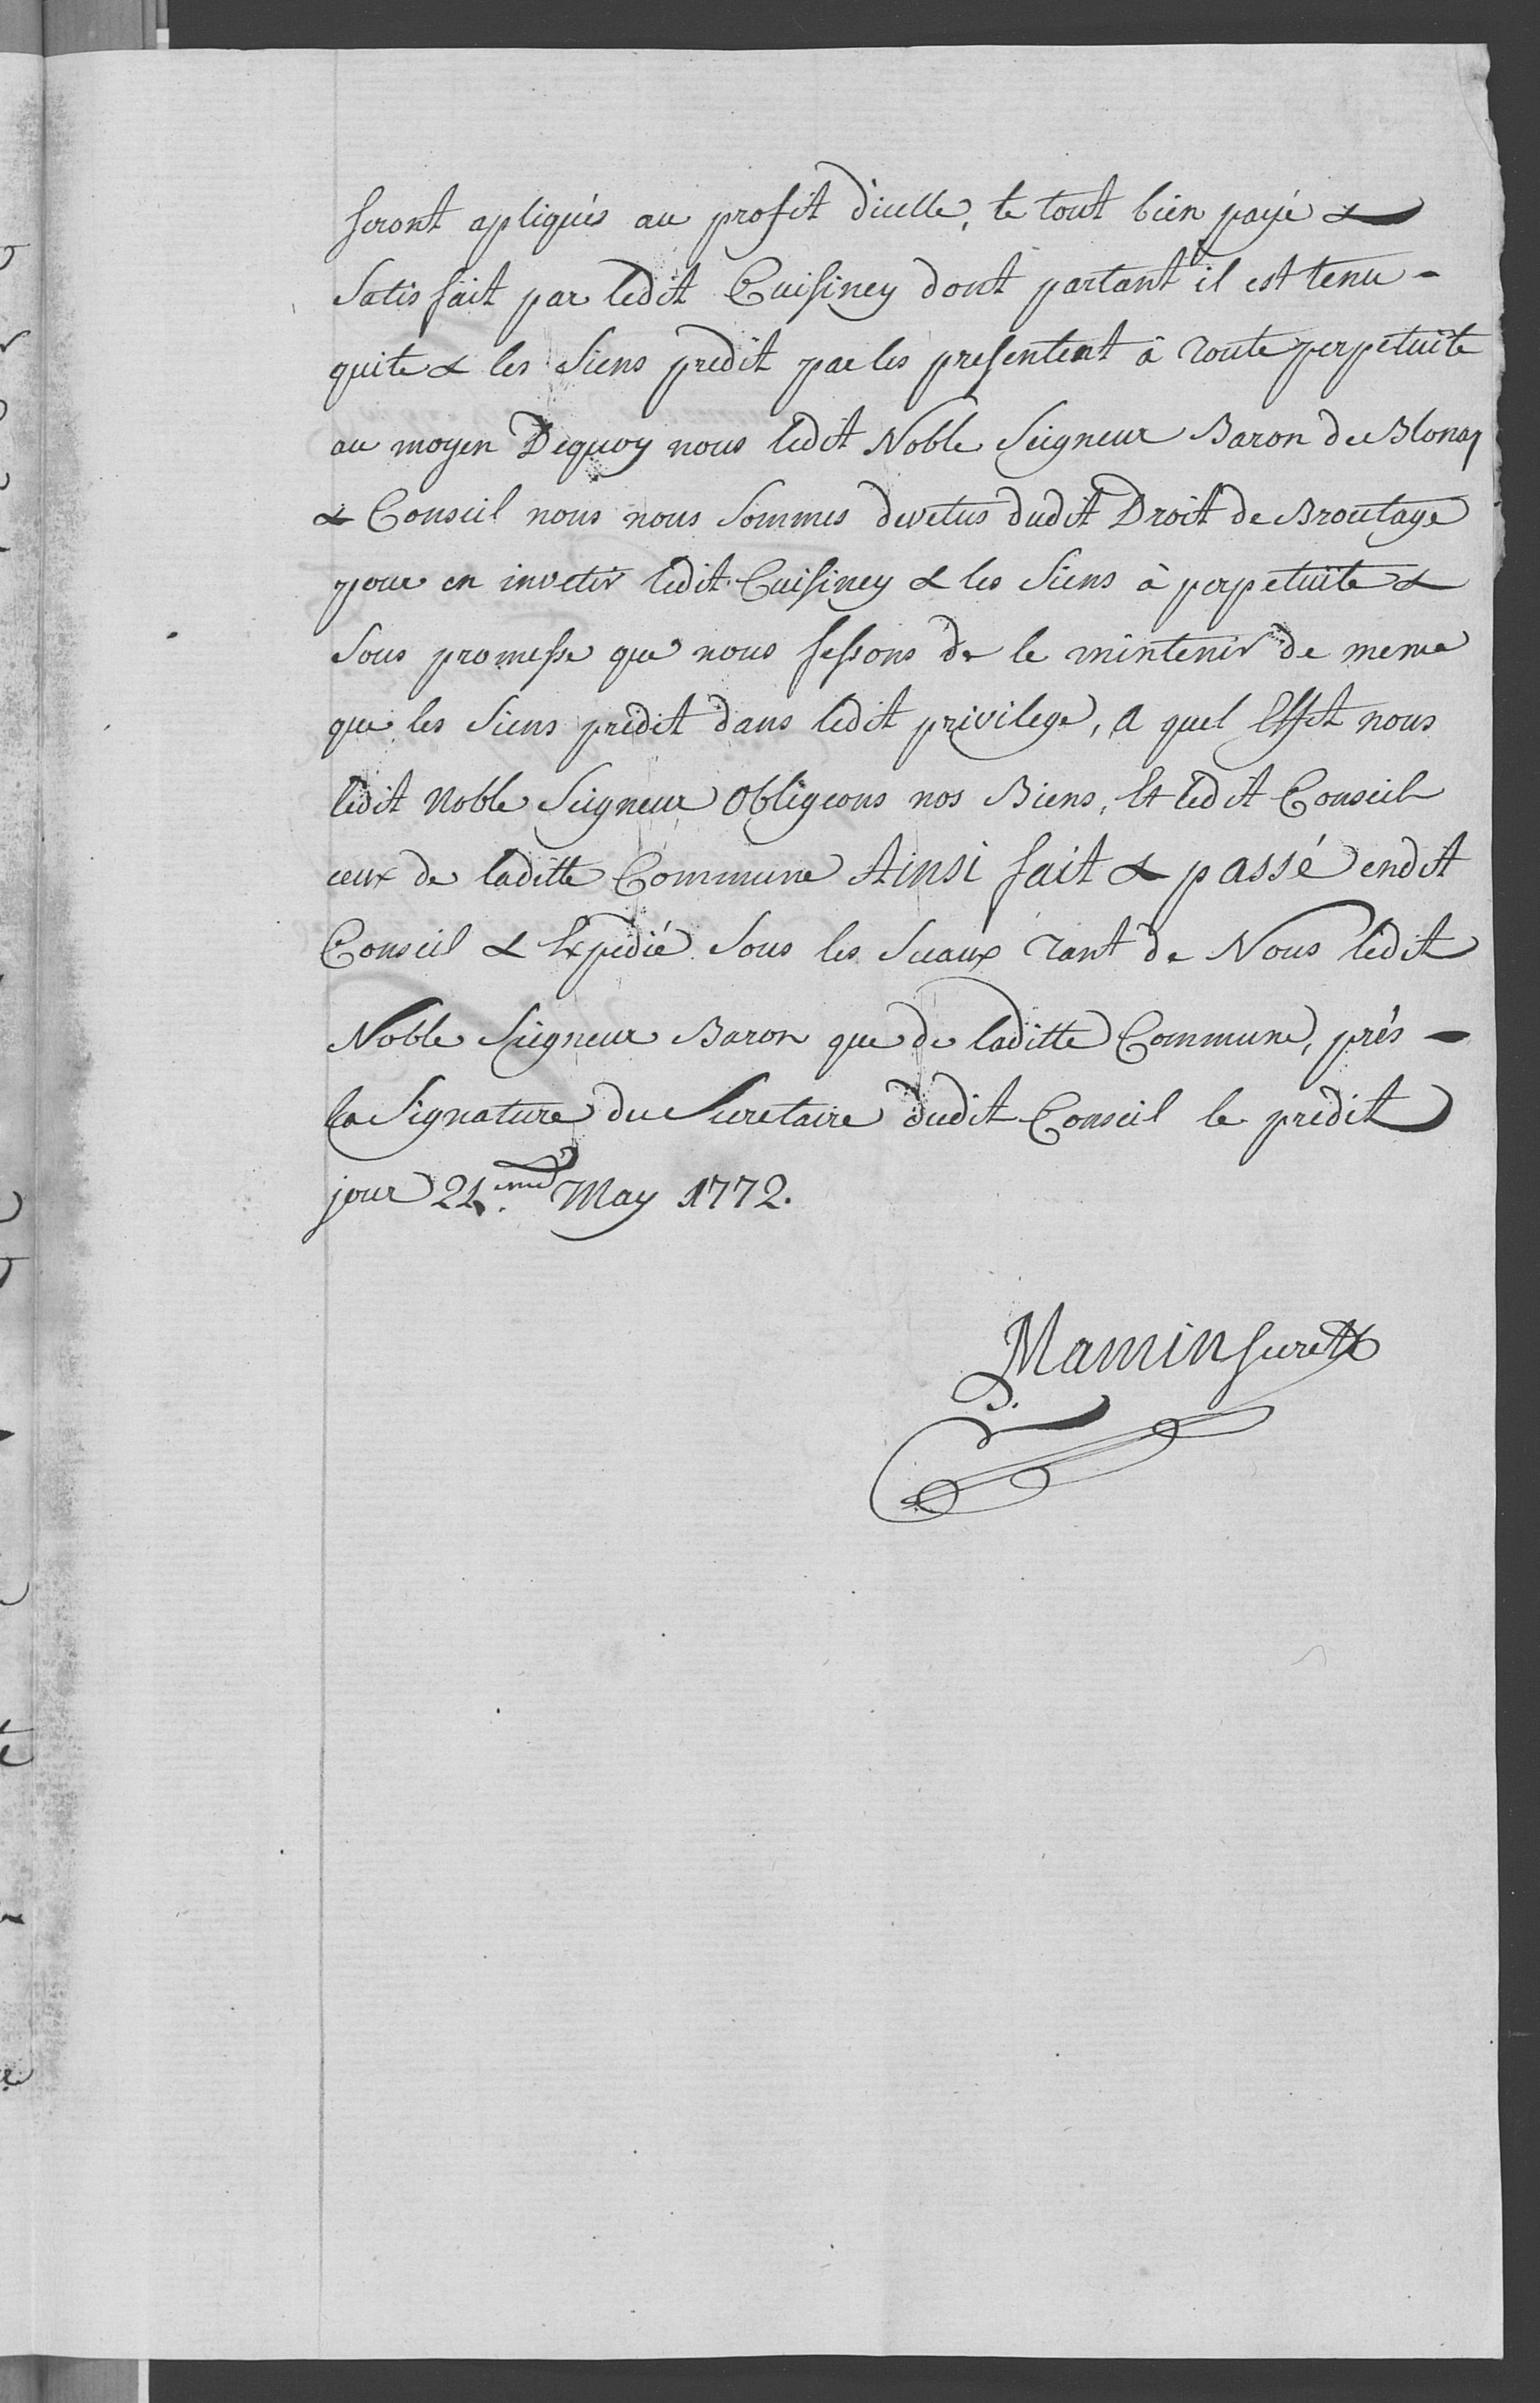 seront apliqués au profit d'icelle, le tout bien payé &
Satisfait par ledit Cuisiney dont partant il est tenu -
quite & les Siens predit par les presentent à toute perpetuite
au moyen Dequoy nous ledit Noble Seigneur Baron de Blonay
& Conseil nous nous Sommes devetus dudit Droit de Broutage
pour en invetir ledit Cuisiney & les Siens à perpetuite &
Sous promesse que nous fessons de le mintenir de meme
que les Siens predit dans ledit privilege, a quel Effet nous
ledit Noble Seigneur Obligeons nos Biens, Et ledit Conseil
ceux de laditte Commune Ainsi fait & passé endit
Conseil & Expedié Sous les Sceaux tant de Nous ledit
Noble Seigneur Baron que de laditte Commune, prés -
la Signature du Secretaire dudit Conseil le predit
jour 21.eme May 1772.
Mamin Secret